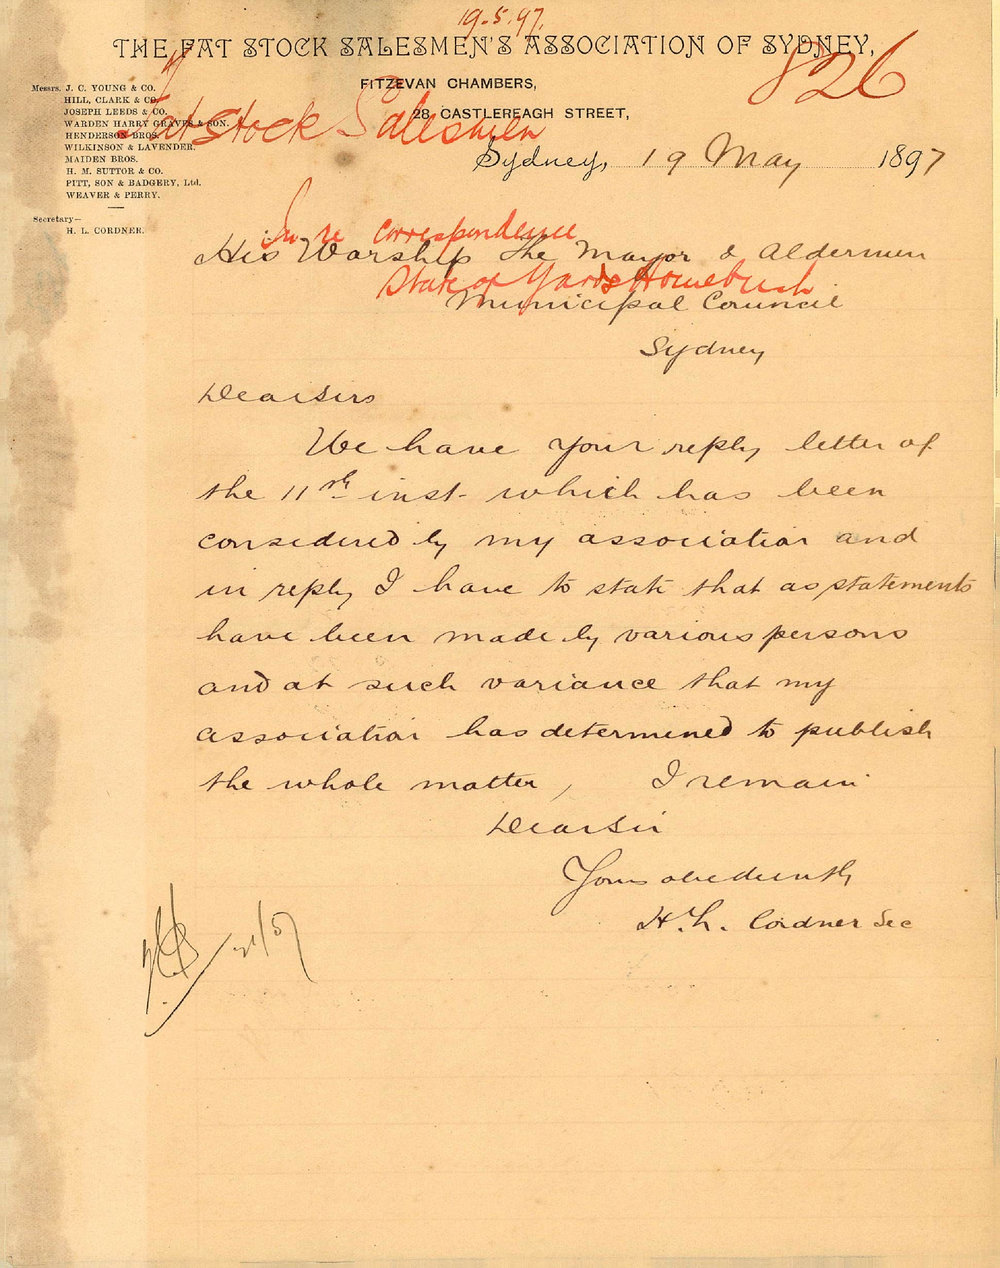 19.5.97.
THE FAT STOCK SALESMEN'S ASSOCIATION OF SYDNEY,
826
FITZEVAN CHAMBERS,
28 CASTLEREAGH STREET,
Messrs. J. C. YOUNG & CO.
HILL, CLARK & CO.
JOSEPH LEEDS & CO.
WARDEN HARRY GRAVES & SON.
HENDERSON BROS.
WILKINSON & LAVENDER.
MAIDEN BROS.
H. M. SUTTOR & CO.
PITT, SON & BADGERY, Ltd.
WEAVER & PERRY.
Secretary—
H. L. CORDNER.
Fat Stock Salesmen
Sydney, 19 May 1897
In re correspondence
His Worship The Mayor & Aldermen
State of Yards Homebush
Municipal Council
Sydney
Dear Sirs
We have your reply letter of
the 11th inst. which has been
considered by my association and
in reply I have to state that as statements
have been made by various persons
and at such variance that my
association has determined to publish
the whole matter, I remain
Dear Sir
Yours obediently
H. L. Cordner Sec